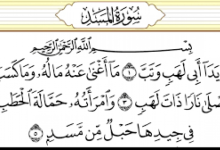 سُورَةُ المَسَدِ
بِسْمِ ٱللَّهِ ٱلرَّحْمَٰنِ ٱلرَّحِيمِ
يَدَآ أَبِى لَهَبٍ وَتَبَّ ۝١ مَآ أَغْنَىٰ عَنْهُ مَالُهُۥ وَمَا كَسَبَ
صْلَىٰ نَارًا ذَاتَ لَهَبٍ ۝٣ وَٱمْرَأَتُهُۥ حَمَّالَةَ ٱلْحَطَبِ
فِى جِيدِهَا حَبْلٌ مِّن مَّسَدٍۭ ۝٥